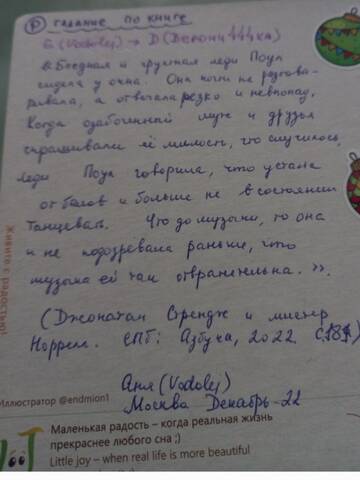 Ⓟ гадание по книге
G (Vodolej) → D (Верони444ка)
«Бледная и грустная леди Поул
сидела у окна. Она почти не разгова-
ривала, а отвечала резко и невпопад.
Когда озабоченный муж и друзья
спрашивали её милость, что случилось,
леди Поул говорила, что устала
от балов и больше не в состоянии
танцевать. Что до музыки, то она
и не подозревала раньше, что
музыка ей так отвратительна.».
(Джонатан Стрендж и мистер
Норрелл. СПб: Азбука, 2022 С.
Аня (Vodolej)
Москва Декабрь-22
Живите с радостью!
Иллюстратор @endmion1
Маленькая радость – когда реальная жизнь
прекраснее любого сна ;)
Little joy – when real life is more beautiful